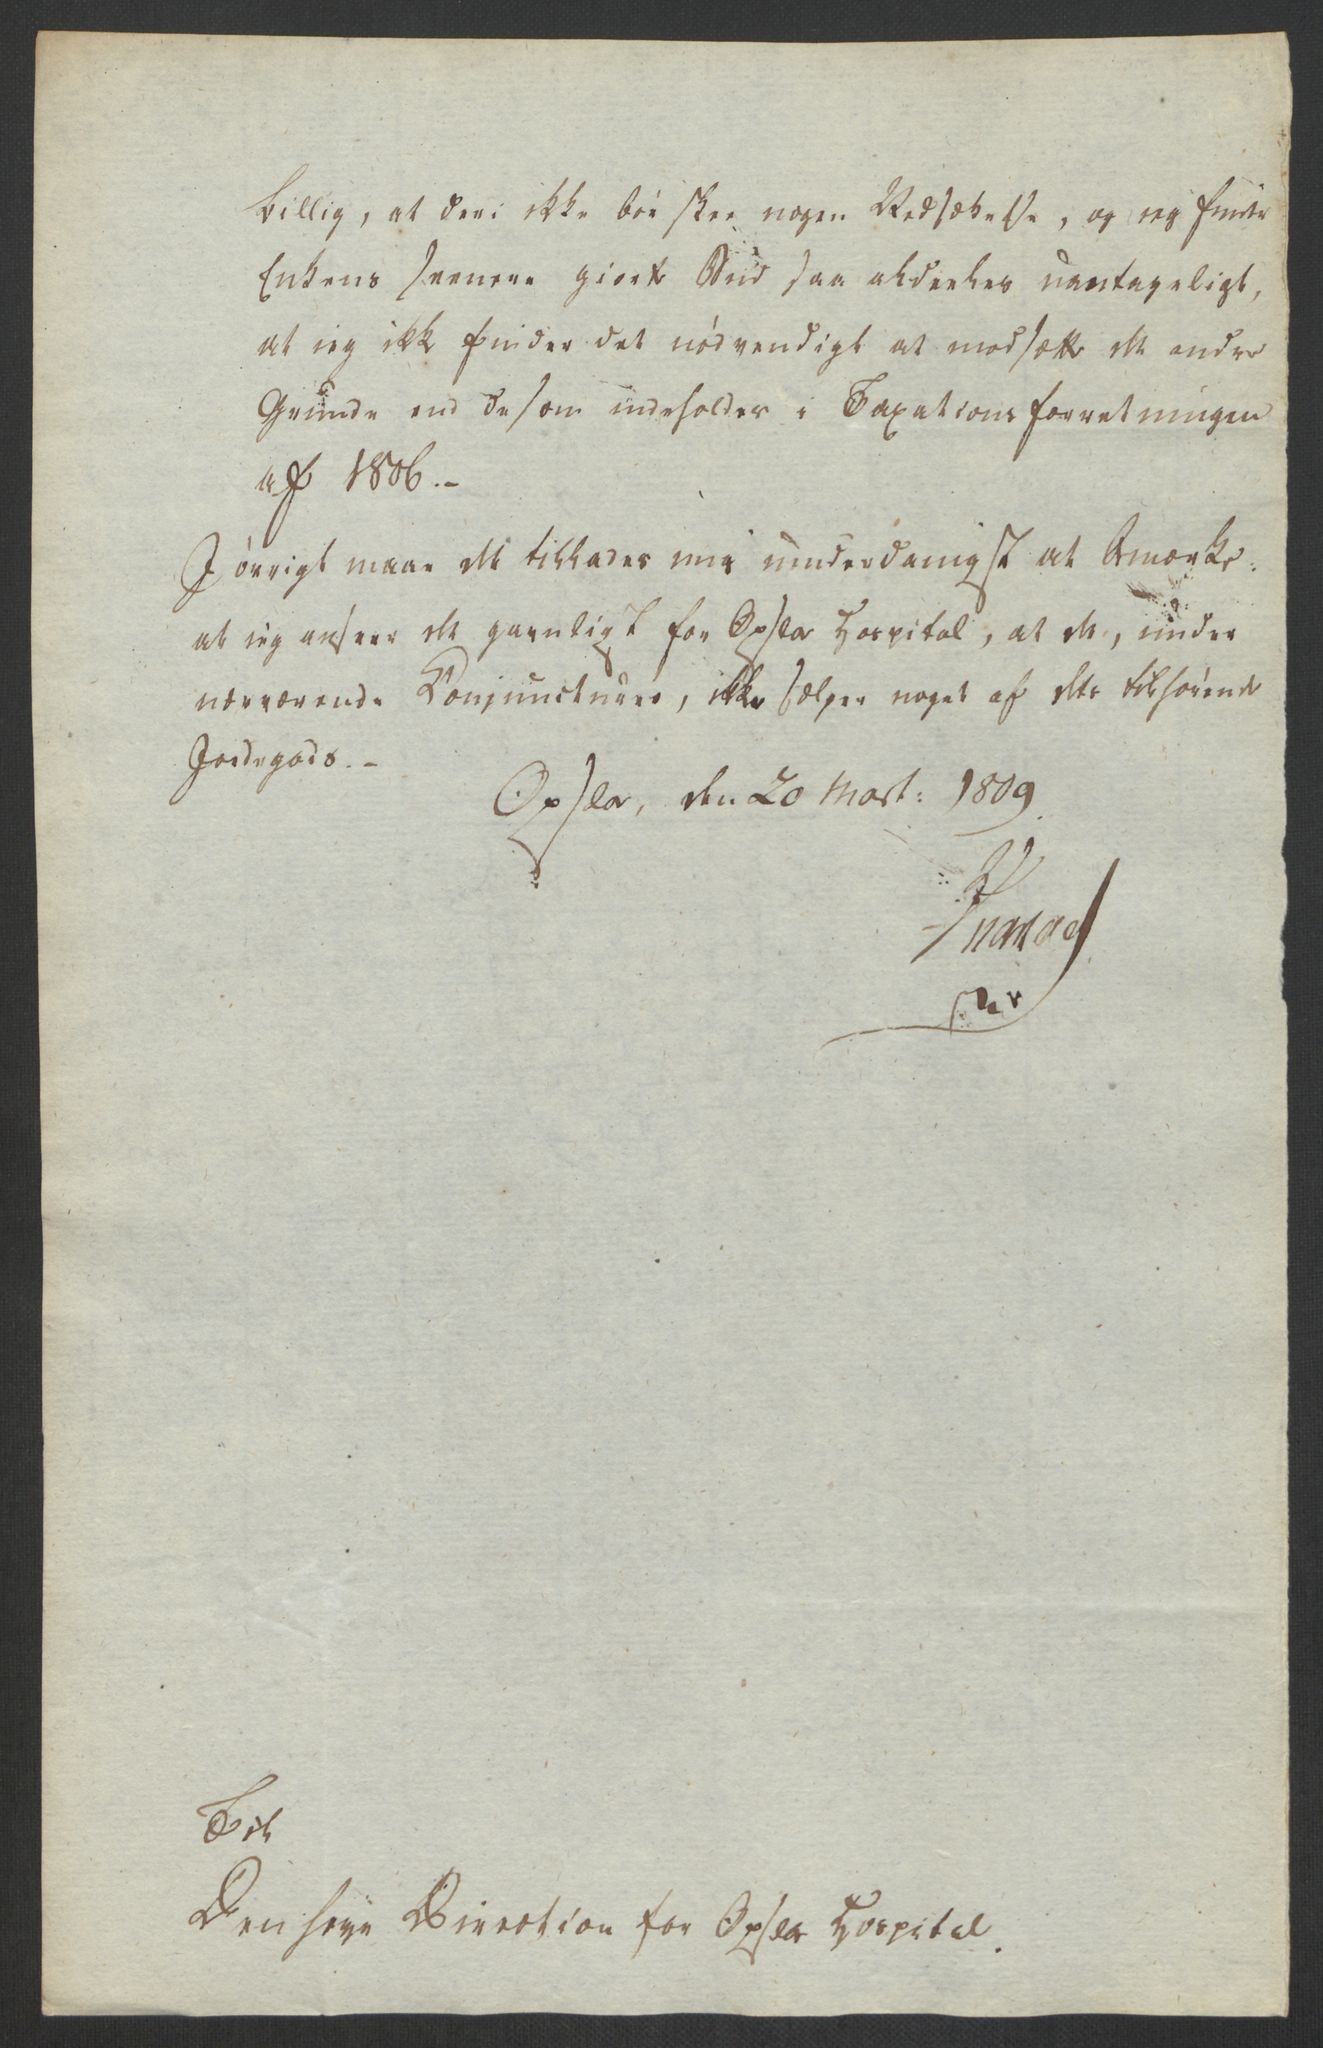 billig, at deri ikke bør skee nogen Nedsættelse, og jeg finder
Enkens seenere giorte Bud saa aldeeles uantageligt,
at jeg ikke finder det nødvendigt at modsætte det andre
Grunde end de som indeholdes i Taxationsforretningen
af 1806.-
I øvrigt maae det tillades mig underdanigst at bemærke:
at jeg anseer det gavnligt for Opslo Hospital, at det, under
nærværende Conjuncturer, ikke sælger noget af dets tilhørende
Jordegods.-
Opslo, den 20 Mart: 1809.
Til
Den høye Direction for Opslo Hospital.